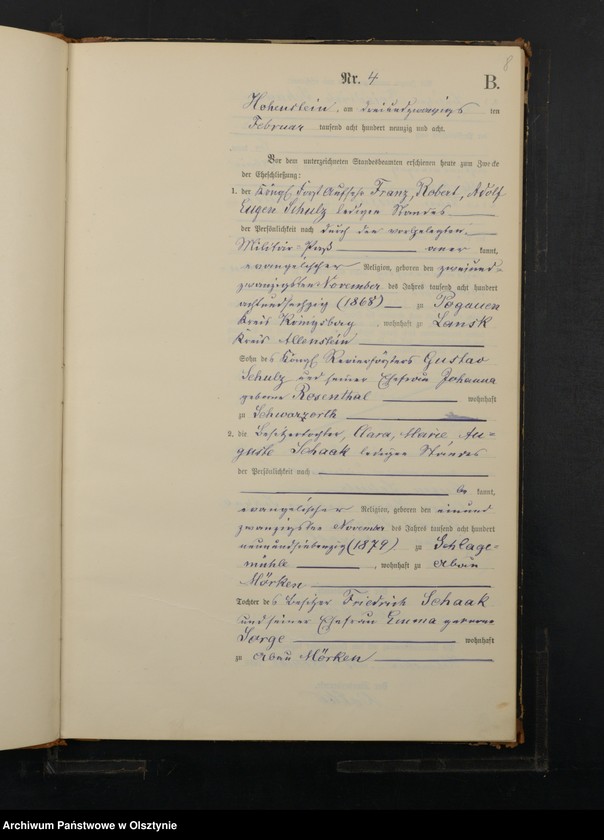 8
Nr. 4
B.
Hohenstein, am dreiundzwanzigs ten
Februar tausend acht hundert neunzig und acht.
Vor dem unterzeichneten Standesbeamten erschienen heute zum Zwecke
der Eheschließung:
1. der Königl. Forst Aufseher Franz, Robert, Adolf
Eugen Schulz ledigen Standes
der Persönlichkeit nach durch den vorgelegten
Militär-Paß aner kannt,
evangelischer Religion, geboren den zweiund-
zwanzigsten November des Jahres tausend acht hundert
achtundsechzig (1868) zu Pogauen
Kreis Königsberg, wohnhaft zu Lansk
Kreis Allenstein
Sohn des Königl. Revierförsters Gustav
Schulz und seiner Ehefrau Johanna
geborene Rosenthal wohnhaft
zu Schwarzorth
2. die Besitzertochter, Clara, Marie Au-
guste Schaak ledigen Standes
der Persönlichkeit nach
be kannt,
evangelischer Religion, geboren den einund
zwanzigsten November des Jahres tausend acht hundert
neunundsiebenzig (1879) zu Schlage-
mühle, wohnhaft zu Abbau
Mörken
Tochter des Besitzer Friedrich Schaak
und seiner Ehefrau Emma geborene
Sorge wohnhaft
zu Abbau Mörken
Archiwum Państwowe w Olsztynie